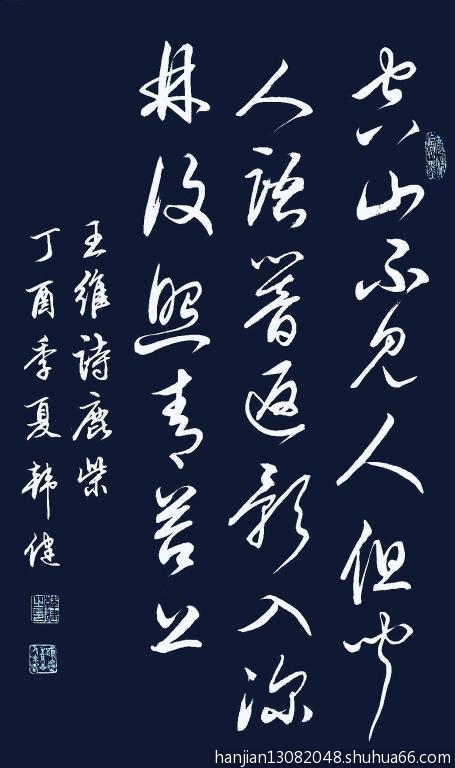 空山不見人但聞
人語響返影入深
林復照青苔上
王維詩鹿柴
丁酉季夏韓健
hanjian13082048.shuhua66.com